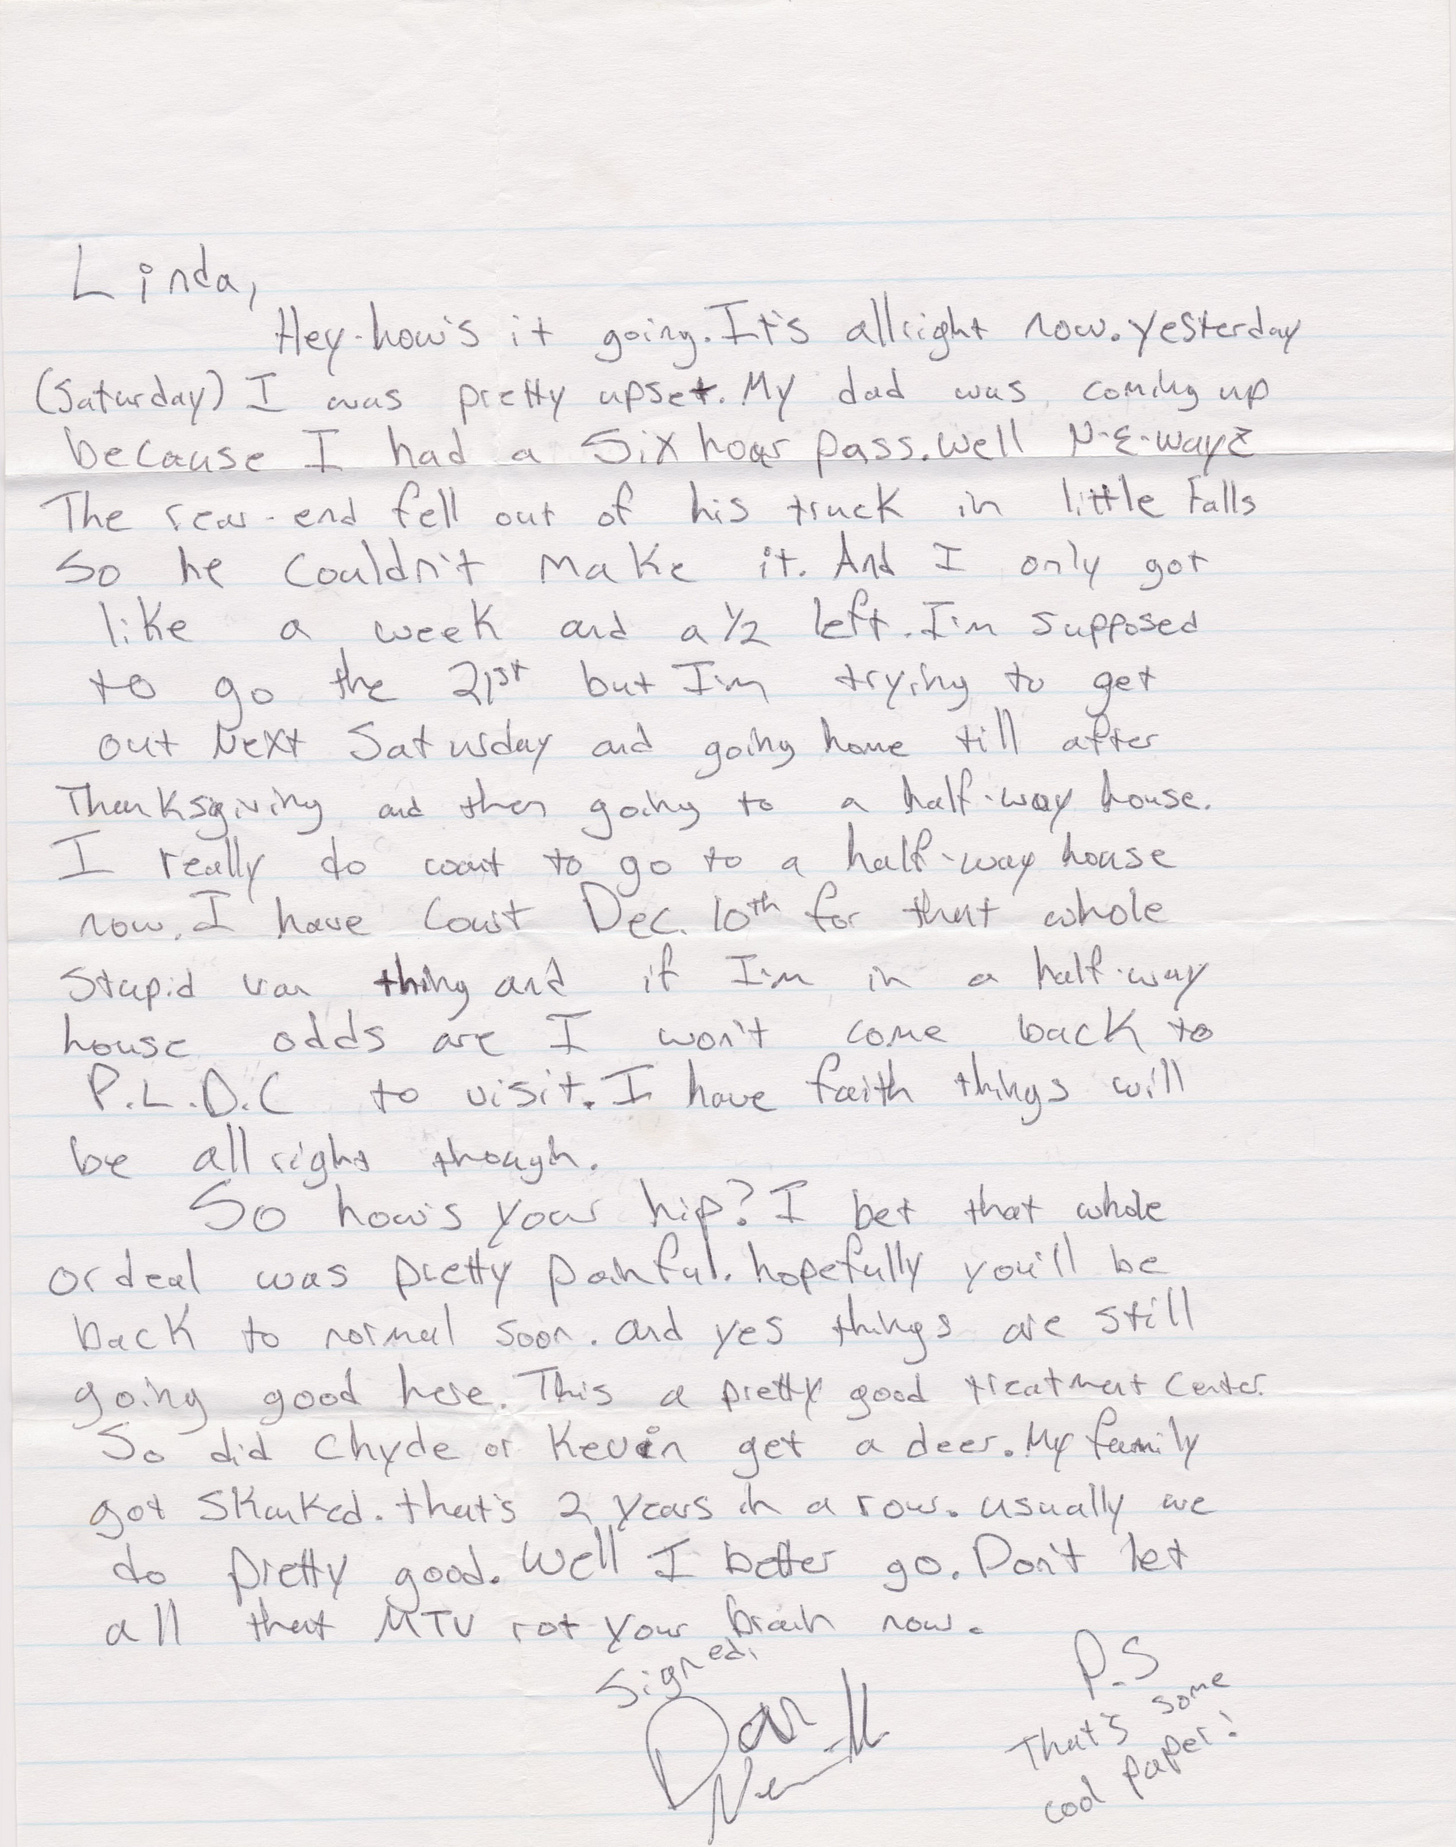 Linda,
Hey-how's it going. It's allright now. yesterday
(Saturday) I was pretty upset. My dad was coming up
because I had a Six hour pass. well N-E-wayz
The rear-end fell out of his truck in little Falls
So he Couldn't make it. And I only got
like a week and a ½ left. I'm supposed
to go the 21st but I'm trying to get
out Next Saturday and going home till after
Thanksgiving and then going to a half-way house.
I really do want to go to a half-way house
now. I have Court Dec. 10th for that whole
Stupid van thing and if I'm in a half-way
house odds are I won't come back to
P.L.D.C to visit. I have faith things will
be allright though.
So how's your hip? I bet that whole
ordeal was pretty painful. hopefully you'll be
back to normal soon. and yes things are still
going good here. This a pretty good treatment center.
So did Chyde or Kevin get a deer. My family
got Skunked. that's 2 years in a row. usually we
do pretty good. Well I better go. Don't let
all that MTV rot your brain now.
Signed,
Dan
P.S
That's some
cool paper!